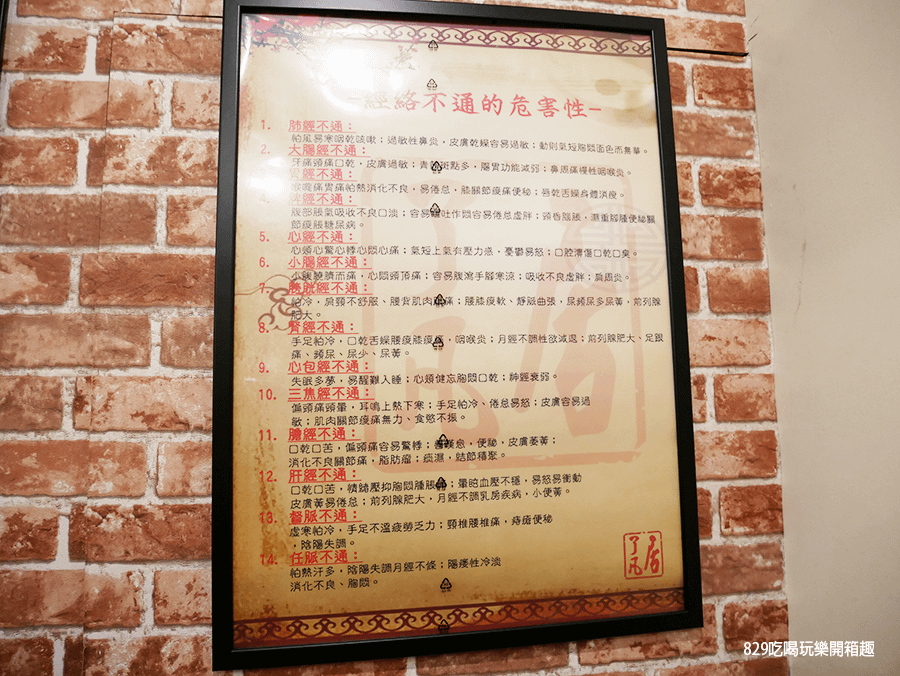 -經絡不通的危害性-
1. 肺經不通：
怕風易寒咽乾咳嗽；過敏性鼻炎，皮膚乾燥容易過敏；動則氣短胸翳面色而無華。
2. 大腸經不通：
牙痛頭痛口乾，皮膚過敏；青斑點多，腸胃功能減弱；鼻頭痛慢性咽喉炎。
胃經不通：
喉嚨痛胃痛怕熱消化不良，易倦怠，膝關節痠痛便秘；唇乾舌燥身體消瘦。
4. 脾經不通：
腹部脹氣吸收不良口淡；容易嘔吐作悶容易倦怠虛胖；頭昏陰脹，濕重腳腫便秘關
節痠脹糖尿病。
5. 心經不通：
心煩心驚心悸心悶心痛；氣短上氣有壓力感，憂鬱易怒；口腔潰傷口乾口臭。
6. 小腸經不通：
小腹繞臍而痛，心悶頭頂痛；容易腹瀉手腳寒涼；吸收不良虛胖；肩周炎。
7. 膀胱經不通：
怕冷，肩頸不舒服、腰背肌肉痛；腰膝痠軟、靜脈曲張，尿頻尿多尿黃，前列腺
肥大。
8. 腎經不通：
手足怕冷，口乾舌燥腰痠膝痠痛，咽喉炎；月經不調性欲減退；前列腺肥大、足跟
痛、頻尿、尿少、尿黃。
9. 心包經不通：
失眠多夢，易醒難入睡；心煩健忘胸悶口乾；神經衰弱。
10. 三焦經不通：
偏頭痛頭暈，耳鳴上熱下寒；手足怕冷、倦怠易怒；皮膚容易過
敏；肌肉關節痠痛無力、食慾不振。
11. 膽經不通：
口乾口苦，偏頭痛容易驚悸；善嘆息，便秘，皮膚萎黃；
消化不良關節痛，脂肪瘤；痰濕，結節積聚。
12. 肝經不通：
口乾口苦，情跡壓抑胸悶腫脹；暈暗血壓不穩，易怒易衝動
皮膚黃易倦怠；前列腺肥大，月經不調乳房疾病，小便黃。
13. 督脈不通：
虛寒怕冷，手足不溫疲勞乏力；頸椎腰椎痛，痔瘡便秘
，陰陽失調。
14. 任脈不通：
怕熱汗多，陰陽失調月經不條；陽痿性冷淡
消化不良、胸悶。
了凡居
829吃喝玩樂開箱趣